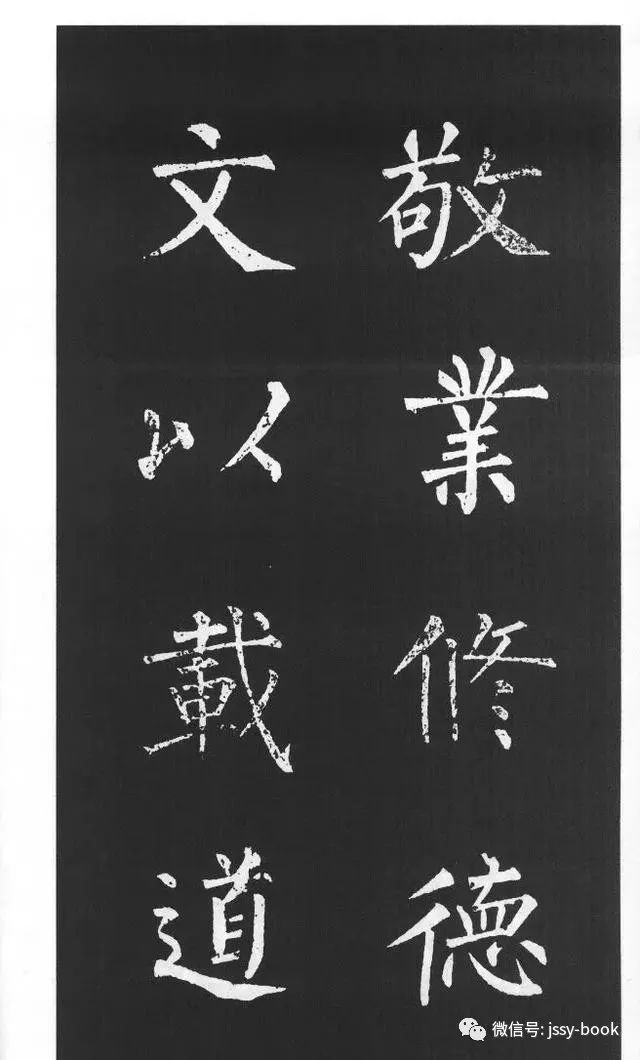 敬業修德
文以載道
微信号: jssy-book